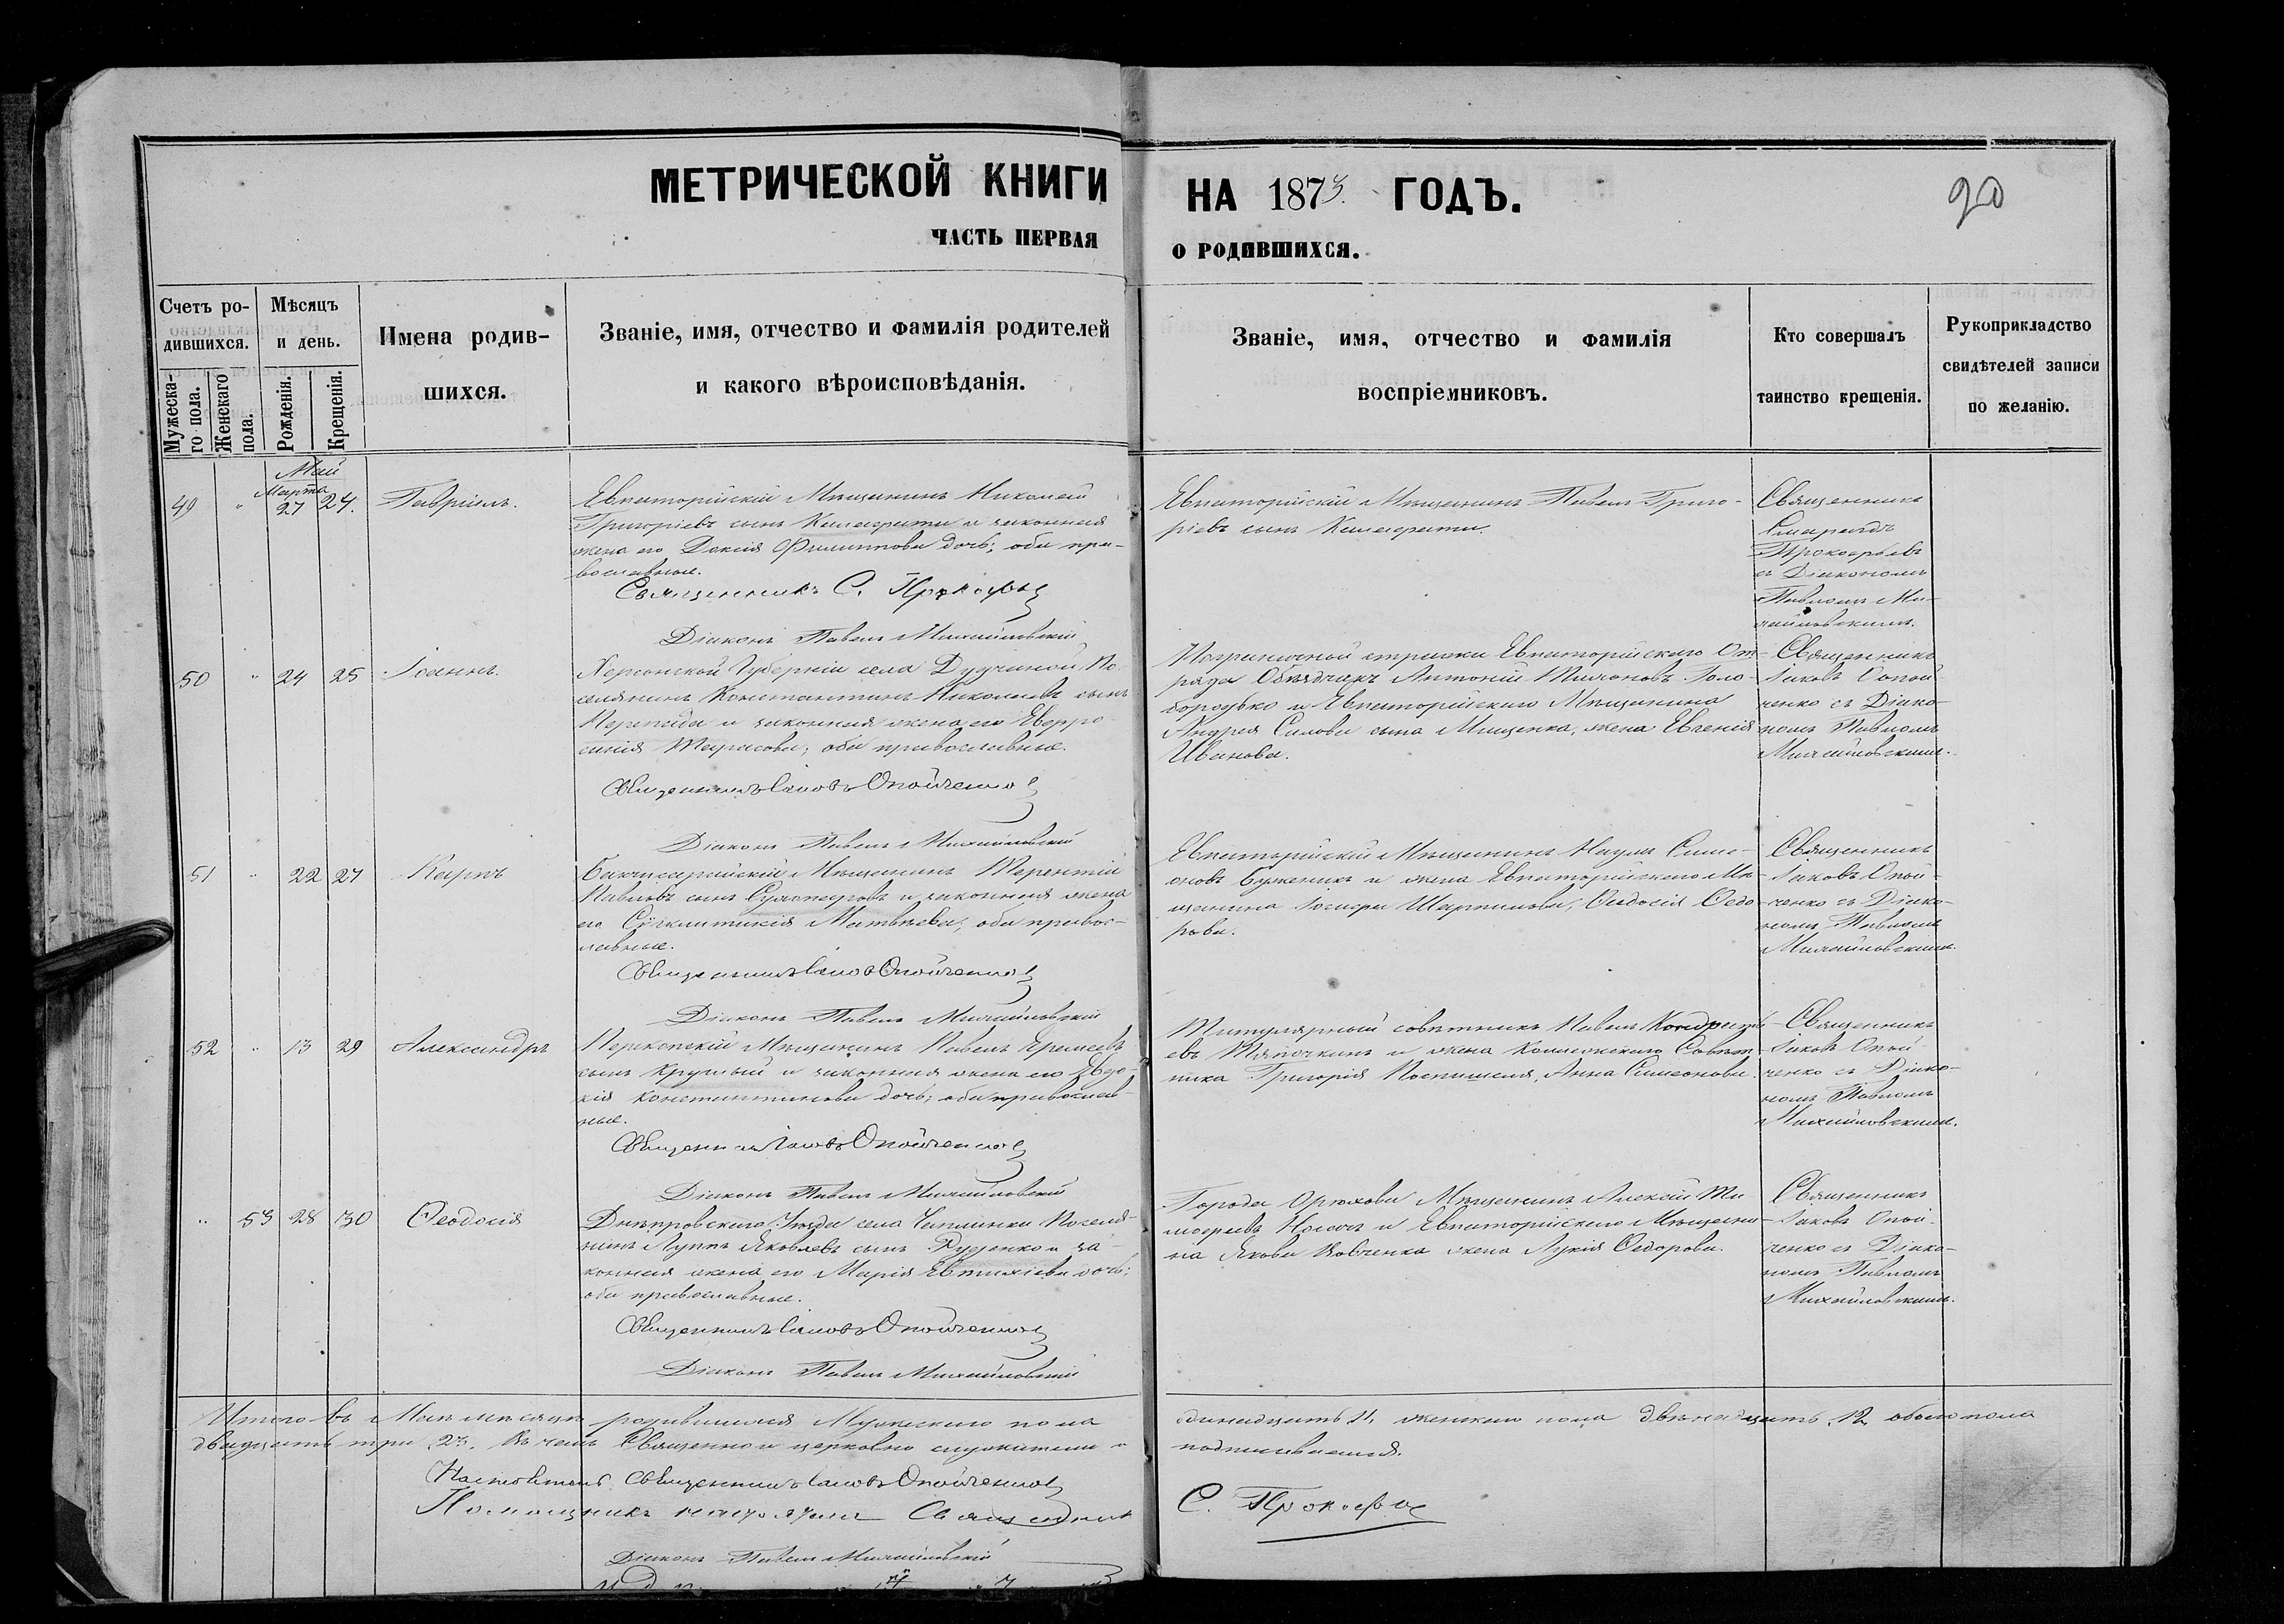 МЕТРИЧЕСКОЙ КНИГИ НА 1873 ГОДЪ.
20
ЧАСТЬ ПЕРВАЯ О РОДИВШИХСЯ.
Счетъ ро-
дившихся.
Мужеска-
го пола.
Женскаго
пола.
Мѣсяцъ
и день.
Рожденія.
Крещенія.
Имена родив-
шихся.
Званіе, имя, отчество и фамилія родителей
и какого вѣроисповѣданія.
Званіе, имя, отчество и фамилія
воспріемниковъ.
Кто совершалъ
таинство крещенія.
Рукоприкладство
свидѣтелей записи
по желанію.
Май
Марта
49 " 27 24. Гавріилъ.
Евпаторійскій Мѣщанинъ Николай
Григоріевъ сынъ и законная
жена его Филиппова дочь; оба пра-
вославные.
Священникъ С. Прокофь
Діаконъ Павелъ Михайловскій
Евпаторійскій Мѣщанинъ Павелъ Григо-
ріевъ сынъ
Священникъ
Смарагдъ
Прокофьевъ
съ Діакономъ
Павломъ Ми-
хайловскимъ.
50 " 24 25 Іоаннъ.
Херсонской Губерніи села По-
селянинъ Константинъ Николаевъ сынъ
и законная жена его Евфро-
синія Тарасова; оба православные.
Священникъ Іаковъ Опойченко
Діаконъ Павелъ Михайловскій
Пограничной стражи Евпаторійскаго От-
ряда Объѣдчикъ Антоній Голо-
бородько и Евпаторійскаго Мѣщанина
Андрея Силова сына Мищенка, жена Евгенія
Иванова.
Священникъ
Іаковъ Опой-
ченко съ Діако-
номъ Павломъ
Михайловскимъ.
51 " 22 27 Карпъ
Бахчисарайскій Мѣщанинъ Терентій
Павловъ сынъ и законная жена
его Сигклитикія Матвѣева; оба правос-
лавные.
Священникъ Іаковъ Опойченко
Діаконъ Павелъ Михайловскій
Евпаторійскій Мѣщанинъ Наумъ Симе-
оновъ и жена Евпаторійскаго Мѣ-
щанина Іосифа Феодосія Федо-
рова.
Священникъ
Іаковъ Опой-
ченко съ Діако-
номъ Павломъ
Михайловскимъ.
52 " 13 29 Александръ
Перекопскій Мѣщанинъ Павелъ Еремѣевъ
сынъ Круглый и законная жена его Евдо-
кія Константинова дочь; оба православ-
ные.
Священникъ Іаковъ Опойченко
Діаконъ Павелъ Михайловскій
Титулярный совѣтникъ Павелъ Кондрать-
евъ Тяпочкинъ и жена Коллежскаго Совѣт-
ника Григорія Анна Симеонова.
Священникъ
Іаковъ Опой-
ченко съ Діако-
номъ Павломъ
Михайловскимъ.
" 53 28 30 Феодосія
Днѣпровскаго Уѣзда села Чаплинки Поселя-
нинъ Луппъ Яковлевъ сынъ Руденко и за-
конная жена его Марія Евтихіева дочь;
оба православные.
Священникъ Іаковъ Опойченко
Діаконъ Павелъ Михайловскій
Города Орѣхова Мѣщанинъ Алексѣй Ти-
мофеевъ Носачъ и Евпаторійскаго Мѣщани-
на Якова Вовченка жена Лукія Федорова.
Священникъ
Іаковъ Опой-
ченко съ Діако-
номъ Павломъ
Михайловскимъ.
Итого въ Маѣ мѣсяцѣ родившихся Мужескаго пола одинадцать 11, женскаго пола двѣнадцать 12 обоего пола
двадцать три 23. Въ чемъ Священно и церковно служители и подписываемся.
Настоятель Священникъ Іаковъ Опойченко
Помощникъ настоятеля Священникъ С. Прокофь
Діаконъ Павелъ Михайловскій